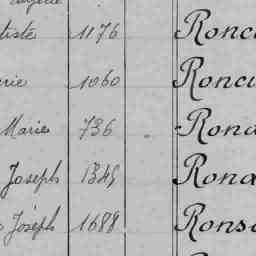 tiste 1176 Ronc
rie 1060 Ronc
Marie 736 Ron
Joseph 1345 Ron
Joseph 1688 Rons